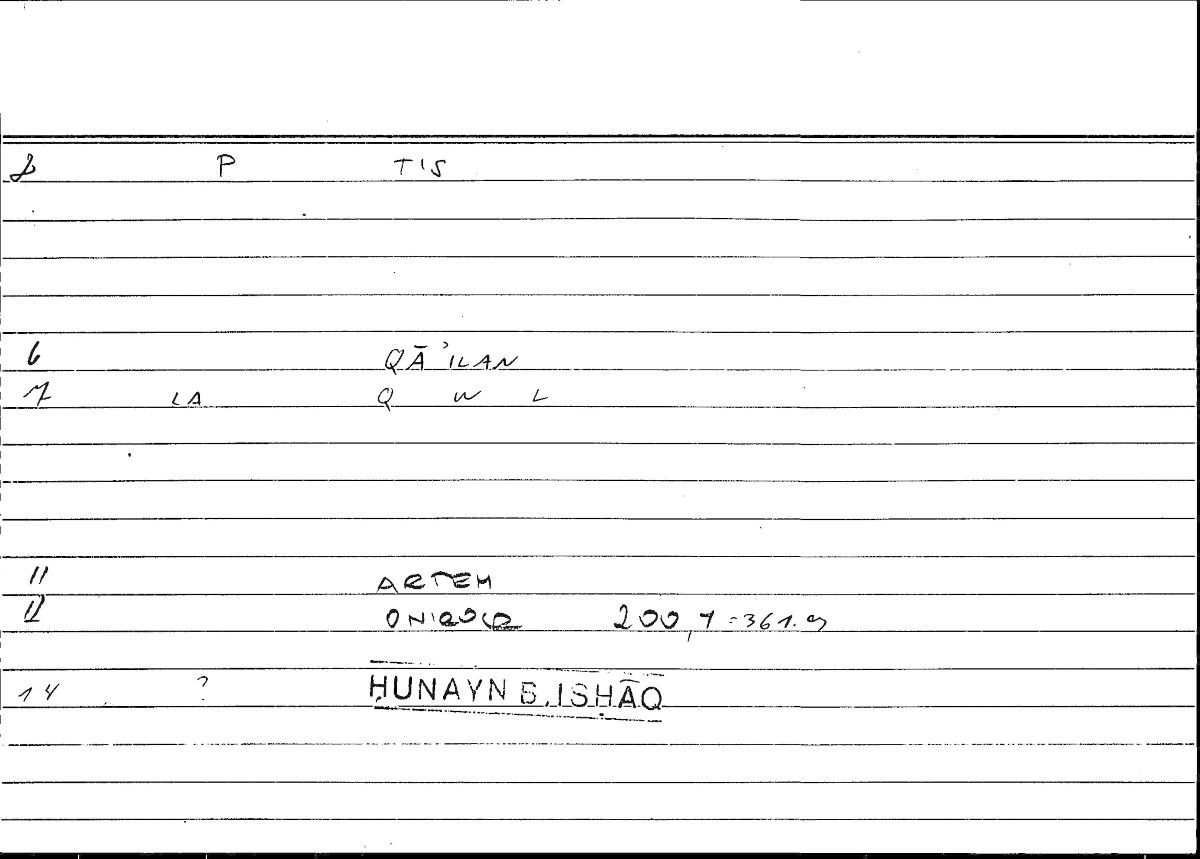 P TIS
6 QĀ'ILAN
7 LA Q W L
11 ARTEM
12 ONIROCR 200,7=361.9
14 ? ḤUNAYN B. ISḤĀQ